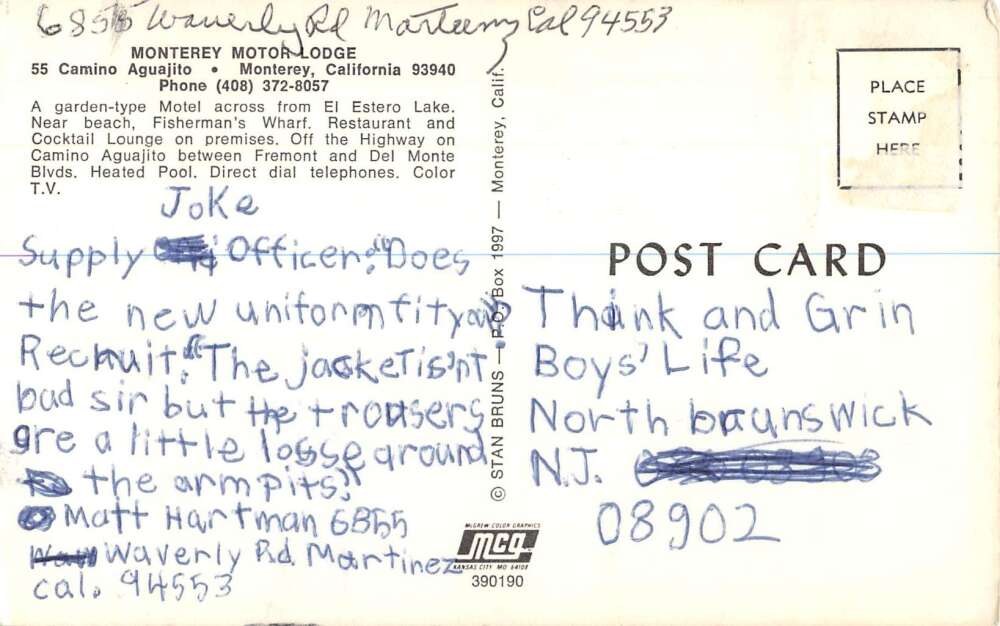 6855 Waverly Rd Martinez Cal 94553
MONTEREY MOTOR LODGE
55 Camino Aguajito • Monterey, California 93940
Phone (408) 372-8057
A garden-type Motel across from El Estero Lake.
Near beach, Fisherman's Wharf. Restaurant and
Cocktail Lounge on premises. Off the Highway on
Camino Aguajito between Fremont and Del Monte
Blvds. Heated Pool. Direct dial telephones. Color
T.V.
Joke
Supply Officer: "Does
the new uniform fit you
Recruit: "The jacket is'nt
bad sir but the trousers
are a little losse around
the armpits."
Matt Hartman 6855
Waverly Rd. Martinez
cal. 94553
© STAN BRUNS — P.O. Box 1997 — Monterey, Calif.
PLACE
STAMP
HERE
POST CARD
Think and Grin
Boys' Life
North braunswick
N.J.
08902
McGREW COLOR GRAPHICS
mcg
KANSAS CITY MO 64108
390190